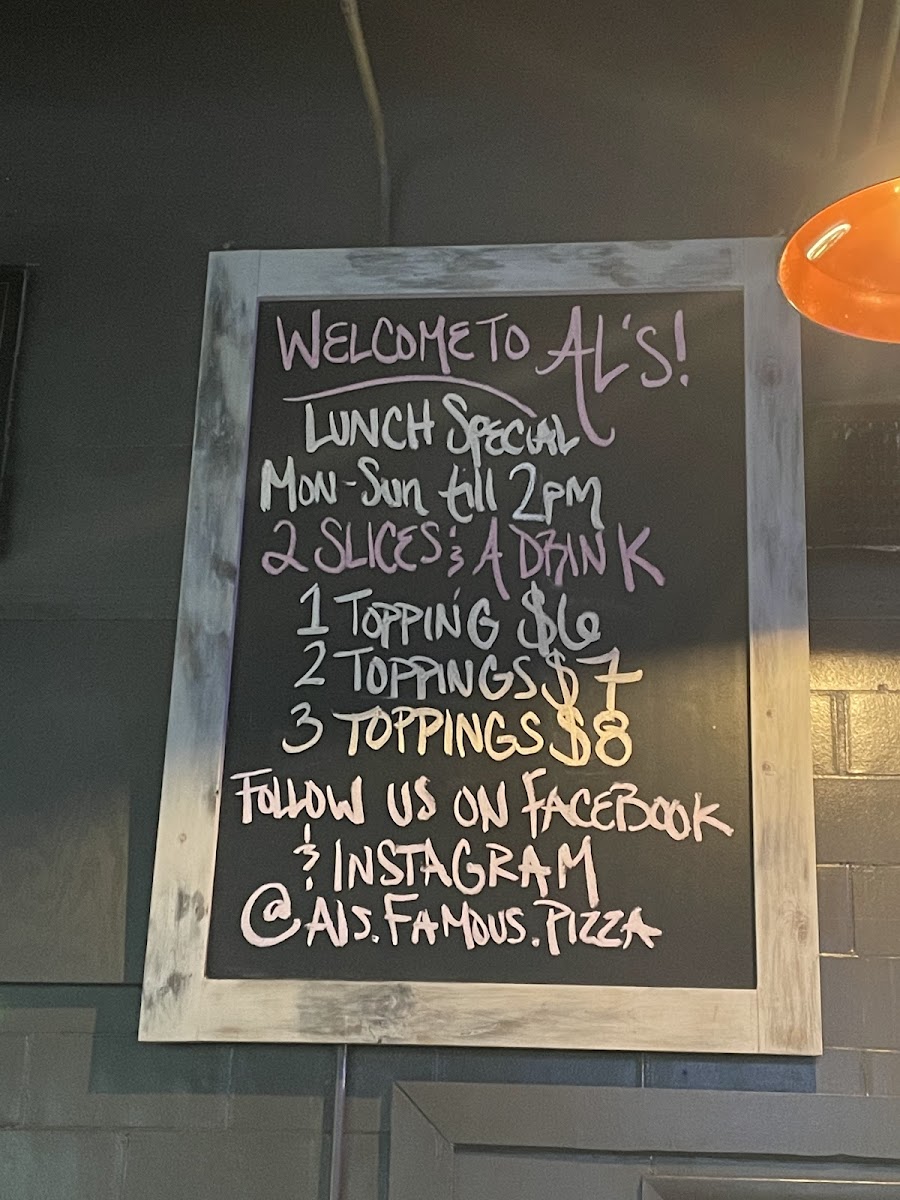 WELCOME TO AL'S!
LUNCH SPECIAL
MON-SUN till 2PM
2 SLICES & A DRINK
1 TOPPING $6
2 TOPPINGS $7
3 TOPPINGS $8
FOLLOW US ON FACEBOOK
& INSTAGRAM
@Als.FAMOUS.PIZZA